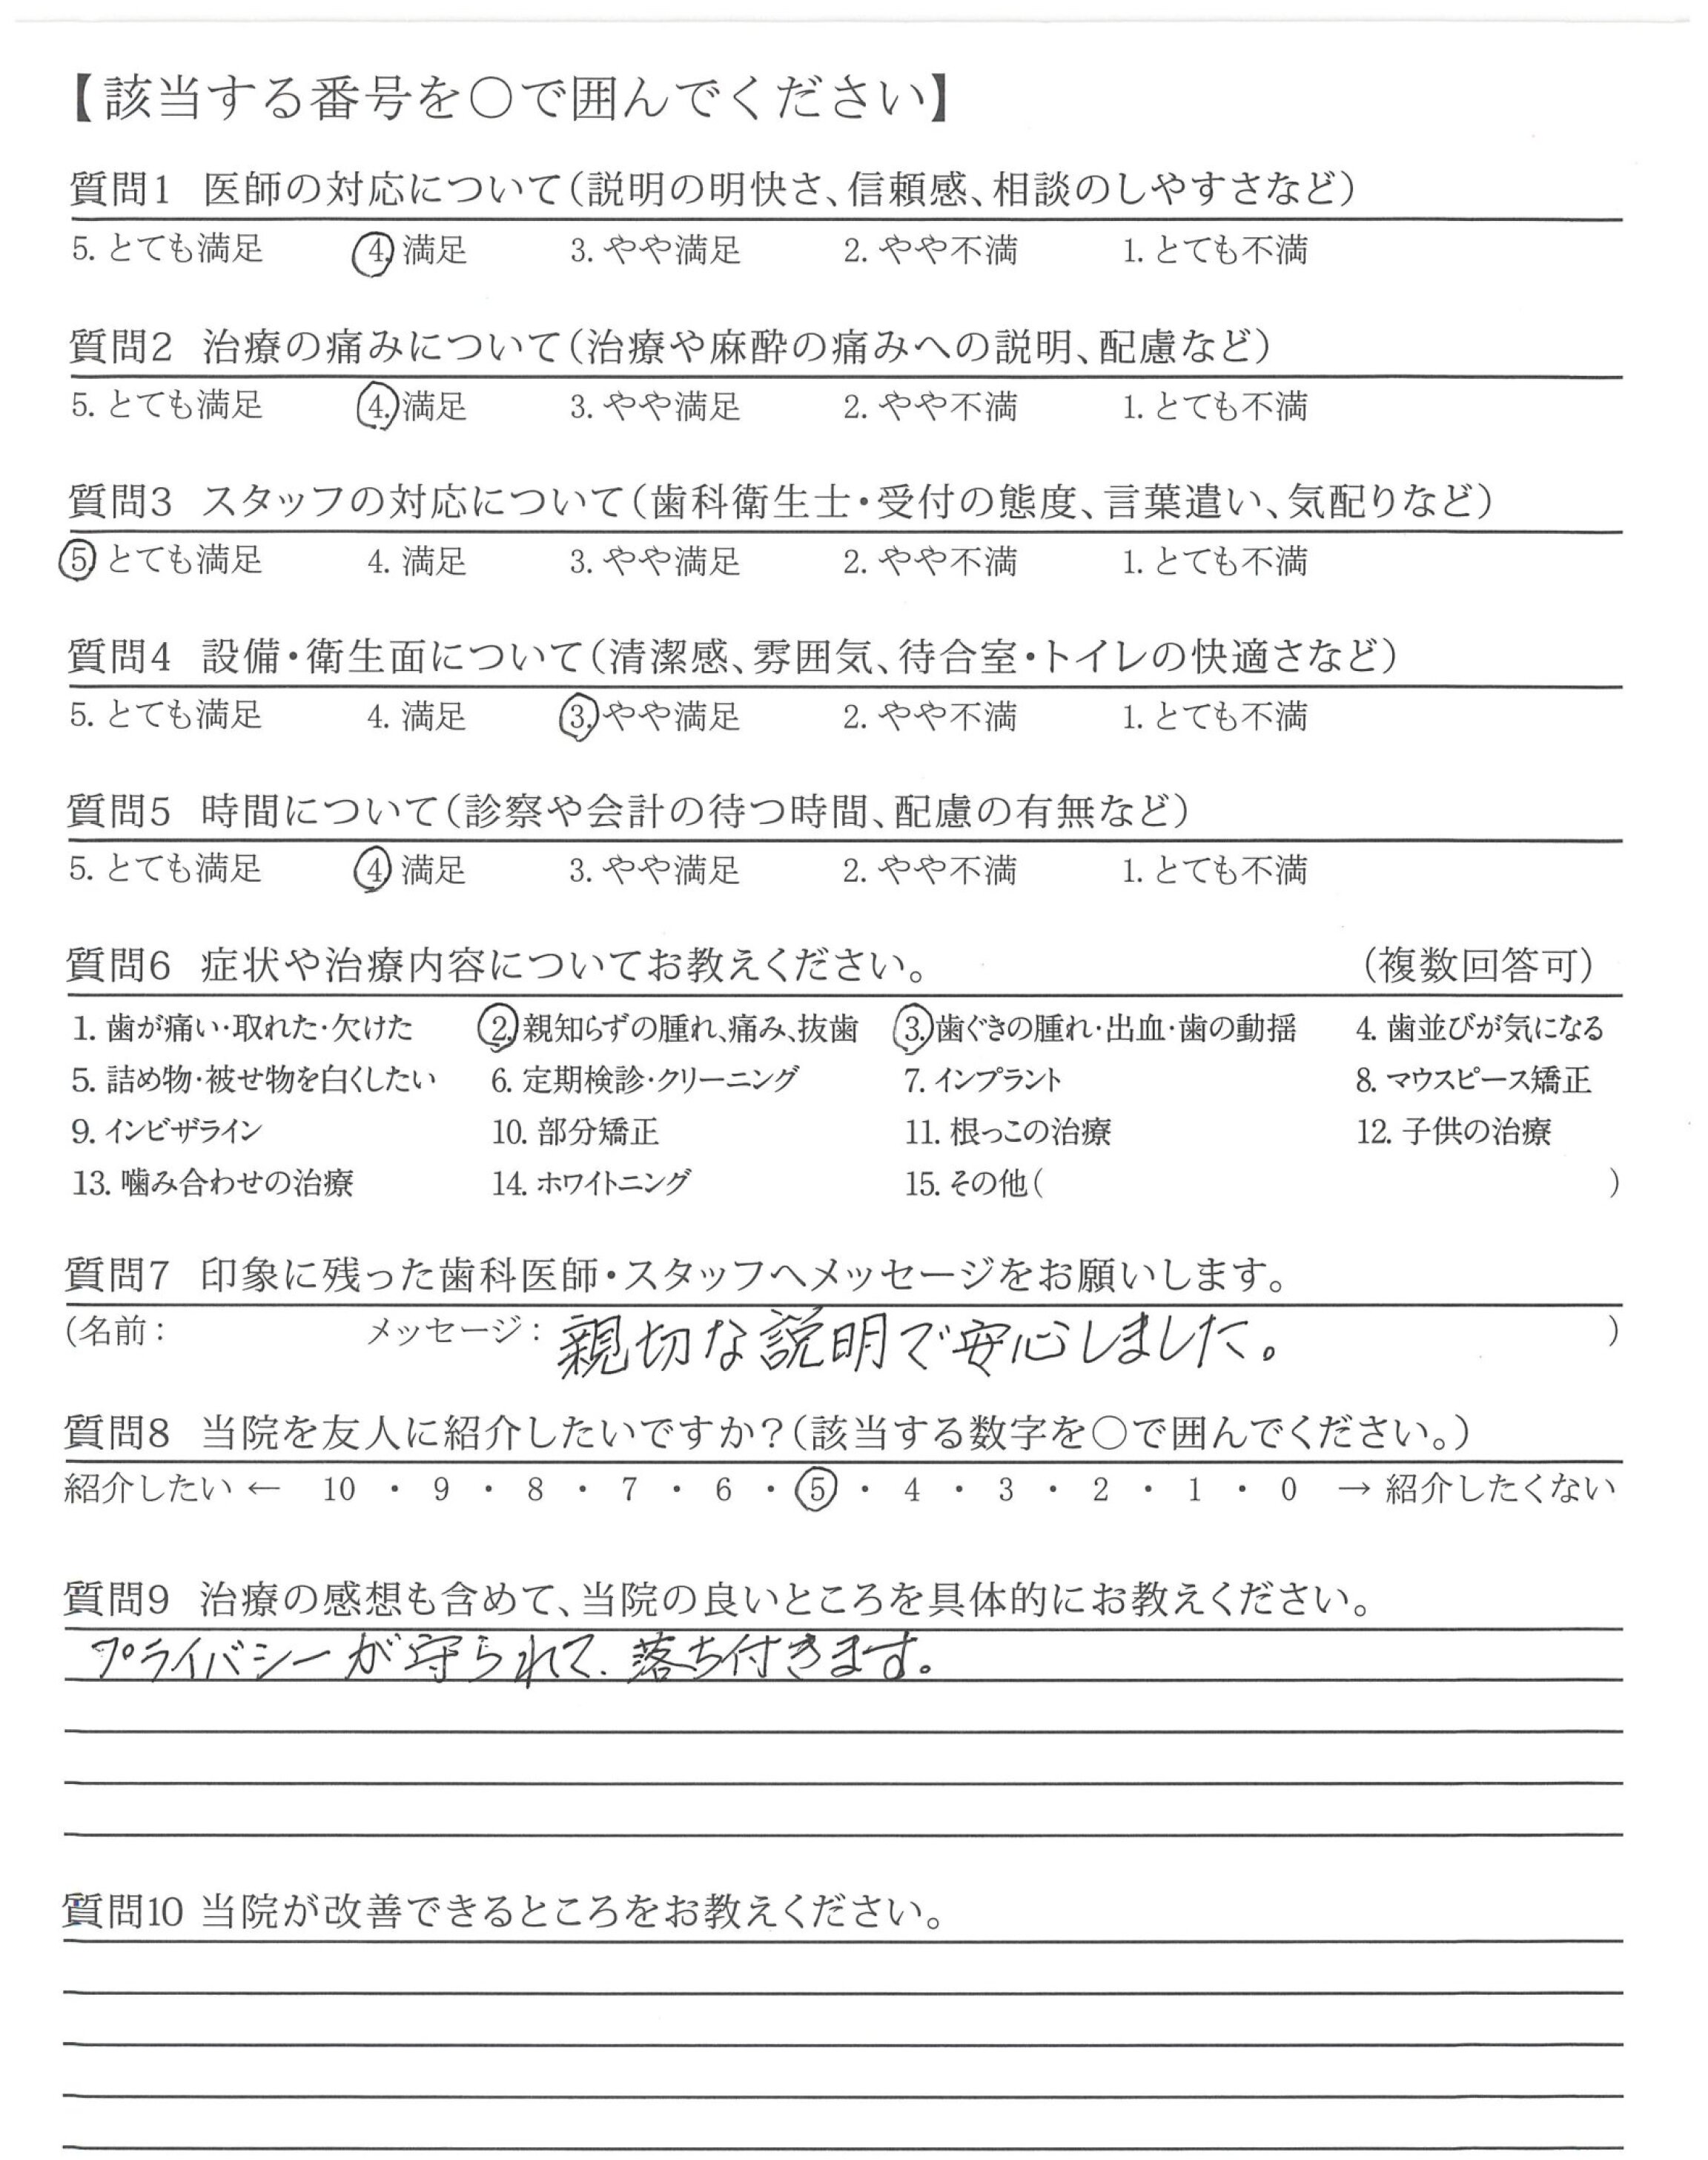 【該当する番号を○で囲んでください】
質問1 医師の対応について(説明の明快さ、信頼感、相談のしやすさなど)
5. とても満足 4. 満足 3. やや満足 2. やや不満 1. とても不満
質問2 治療の痛みについて(治療や麻酔の痛みへの説明、配慮など)
5. とても満足 4. 満足 3. やや満足 2. やや不満 1. とても不満
質問3 スタッフの対応について(歯科衛生士・受付の態度、言葉遣い、気配りなど)
5 とても満足 4. 満足 3. やや満足 2. やや不満 1. とても不満
質問4 設備・衛生面について(清潔感、雰囲気、待合室・トイレの快適さなど)
5. とても満足 4. 満足 3. やや満足 2. やや不満 1. とても不満
質問5 時間について(診察や会計の待つ時間、配慮の有無など)
5. とても満足 4. 満足 3. やや満足 2. やや不満 1. とても不満
質問6 症状や治療内容についてお教えください。 (複数回答可)
1. 歯が痛い・取れた・欠けた 2. 親知らずの腫れ、痛み、抜歯 3. 歯ぐきの腫れ・出血・歯の動揺 4. 歯並びが気になる
5. 詰め物・被せ物を白くしたい 6. 定期検診・クリーニング 7. インプラント 8. マウスピース矯正
9. インビザライン 10. 部分矯正 11. 根っこの治療 12. 子供の治療
13. 噛み合わせの治療 14. ホワイトニング 15. その他( )
質問7 印象に残った歯科医師・スタッフへメッセージをお願いします。
(名前: メッセージ: 親切な説明で安心しました。 )
質問8 当院を友人に紹介したいですか?(該当する数字を○で囲んでください。)
紹介したい ← 10 ・ 9 ・ 8 ・ 7 ・ 6 ・ 5 ・ 4 ・ 3 ・ 2 ・ 1 ・ 0 → 紹介したくない
質問9 治療の感想も含めて、当院の良いところを具体的にお教えください。
プライバシーが守られて、落ち付きます。
質問10 当院が改善できるところをお教えください。